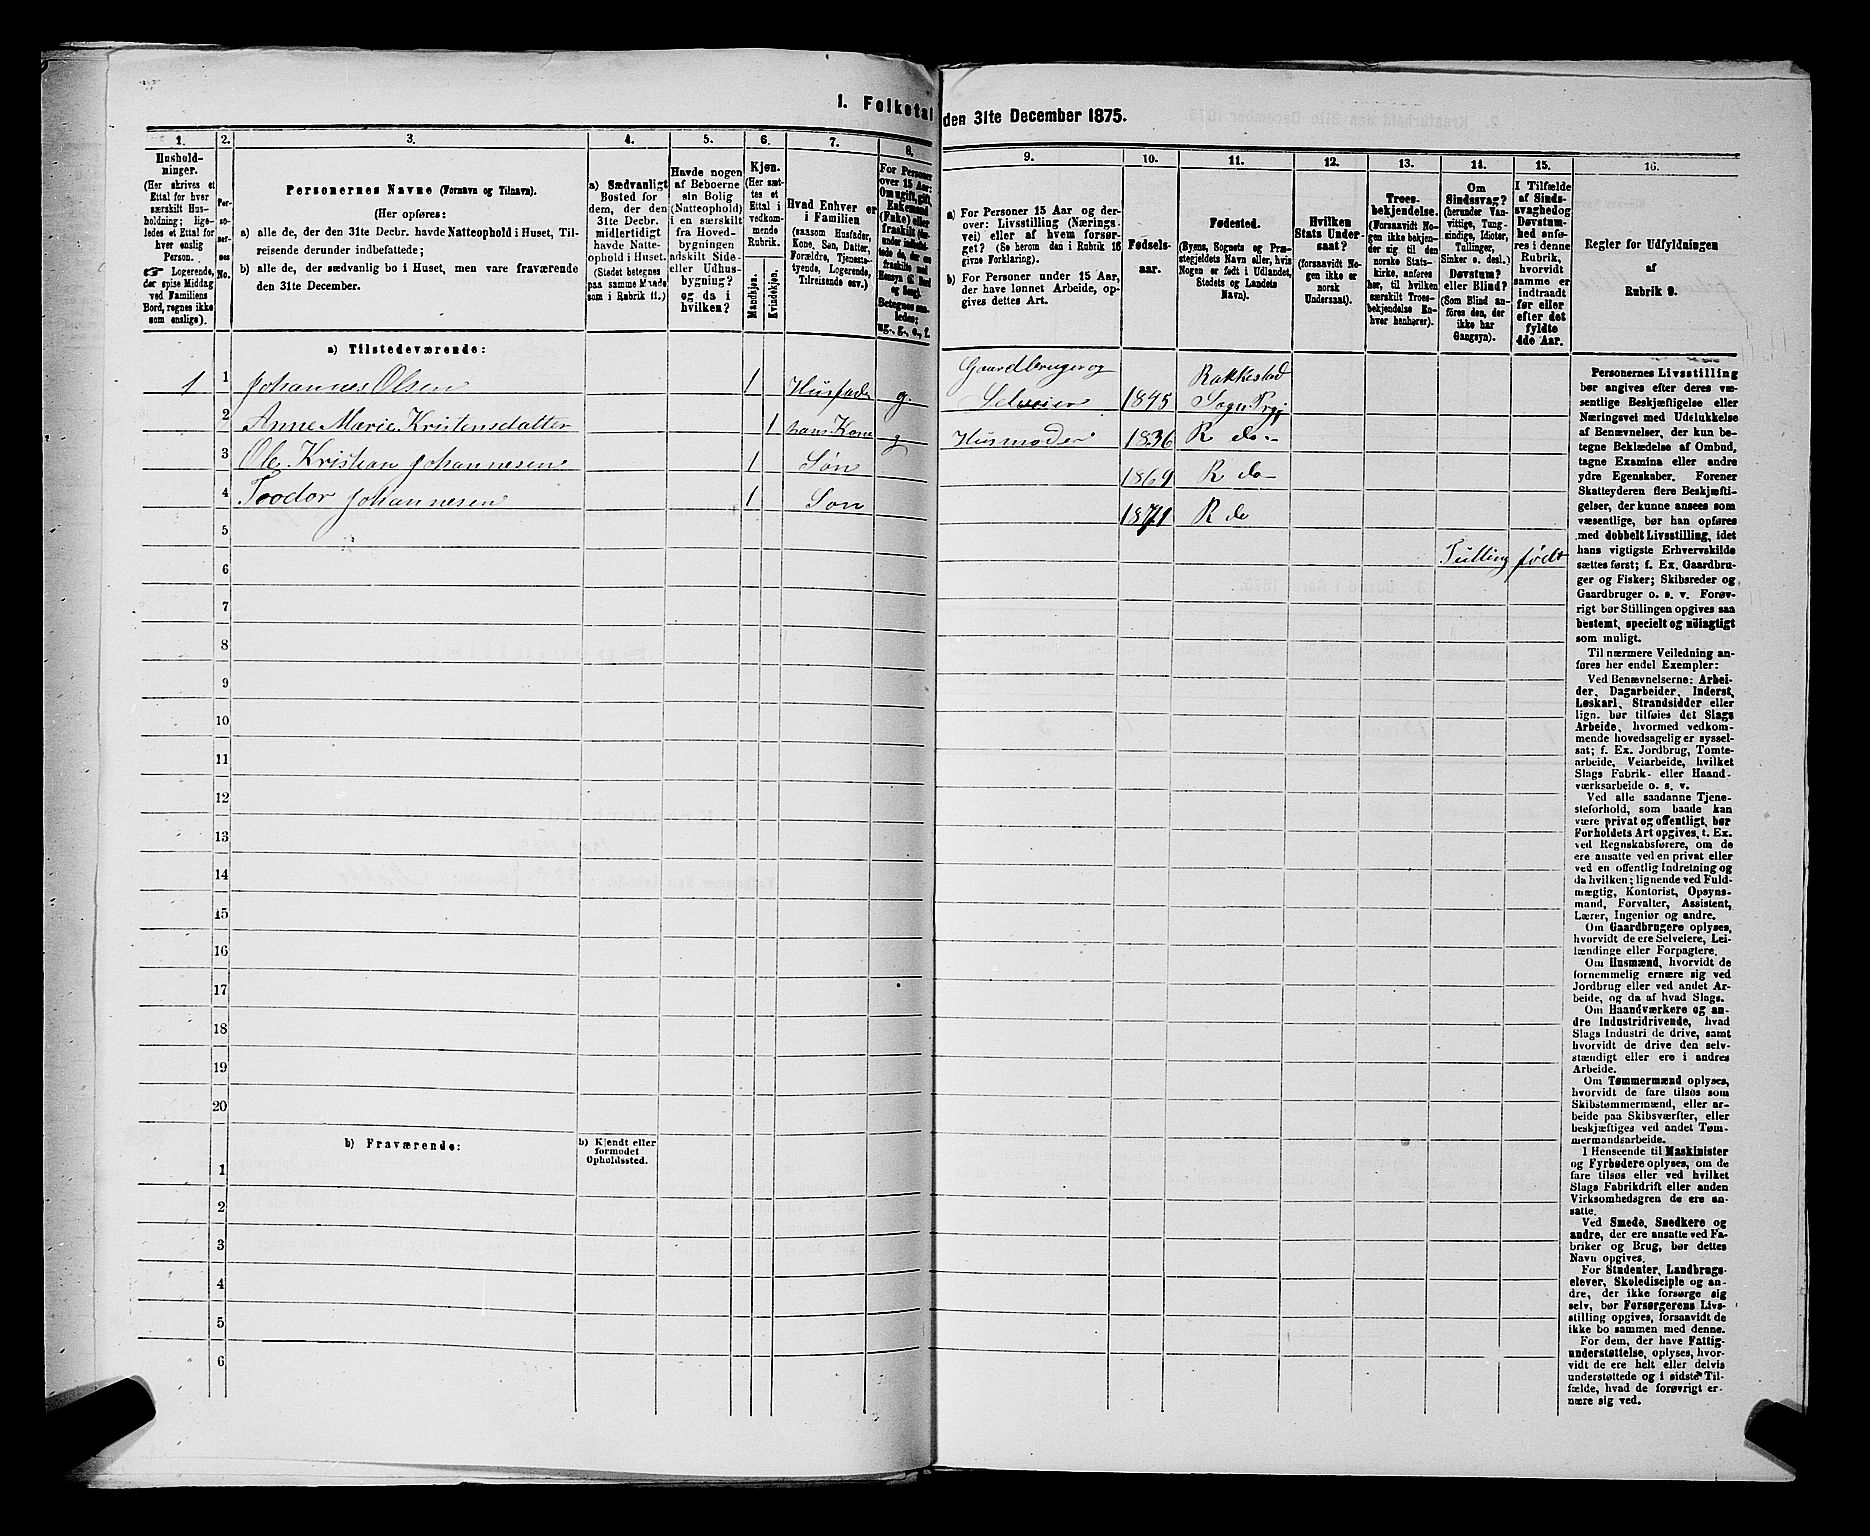 1. Folketal
den 31te December 1875.
1.
2.
3.
4.
5.
6.
7.
8.
9.
10.
11.
12.
13.
14.
15.
16.
Hushold-
ninger.
(Her skrives et
Ettal for hver
særskilt Hus-
holdning; lige-
ledes et Ettal for
hver enslig
Person.
☞ Logerende,
der spise Middag
ved Familiens
Bord, regnes ikke
som enslige).
Per-
so-
ner-
nes
No.
Personernes Navne (Fornavn og Tilnavn).
(Her opføres:
a) alle de, der den 31te Decbr. havde Natteophold i Huset, Til-
reisende derunder indbefattede;
b) alle de, der sædvanlig bo i Huset, men vare fraværende
den 31te December.
a) Sædvanligt
Bosted for
dem, der den
31te Decbr.
midlertidigt
havde Natte-
ophold i Huset.
(Stedet betegnes
paa samme Maade
som i Rubrik 11.)
Havde nogen
af Beboerne
sin Bolig
(Natteophold)
i en særskilt
fra Hoved-
bygningen
adskilt Side-
eller Udhus-
bygning?
og da i
hvilken?
Kjøn.
(Her sæt-
tes et
Ettal i
vedkom-
mende
Rubrik.
Mandkjøn.
Kvindekjøn.
Hvad Enhver er
i Familien
(saasom Husfader,
Kone, Søn, Datter,
Forældre, Tjeneste-
tyende, Logerende,
Tilreisende osv.)
For Personer
over 15 Aar:
Om ugift, gift,
Enkemand
(Enke) eller
fraskilt
Betegnes saa-
ledes:
ug., g., e., f.
a) For Personer 15 Aar og der-
over: Livsstilling (Nærings-
vei) eller af hvem forsør-
get? (Se herom den i Rubrik 16
givne Forklaring).
b) For Personer under 15 Aar,
der have lønnet Arbeide, op-
gives dettes Art.
Fødsels-
aar.
Fødested.
(Byens, Sognets og Præ-
stegjeldets Navn eller, hvis
Nogen er født i Udlandet,
Stedets og Landets
Navn).
Hvilken
Stats Under-
saat?
(forsaavidt No-
gen ikke er
norsk
Undersaat).
Troes-
bekjendelse.
(Forsaavidt No-
gen ikke bekjen-
der sig til den
norske Stats-
kirke, anføres
her, til hvilken
særskilt Troes-
bekjendelse En-
hver henhører).
Om
Sindssvag?
(herunder Van-
vittige, Tung-
sindige, Idioter,
Tullinger,
Sinker o. desl.)
Døvstum?
eller Blind?
(Som Blind an-
føres den, der
ikke har
Gangsyn).
I Tilfælde
af Sinds-
svaghed og
Døvstum-
hed anfø-
res i denne
Rubrik,
hvorvidt
samme er
indtraadt
før eller
efter det
fyldte
4de Aar.
Regler for Udfyldningen
af
Rubrik 9.
a) Tilstedeværende:
1 1 Johannes Olsen 1 Husfader g. Gaardbruger og Selveier 1845 Rakkestad Sogn Prgj
2 Anne Marie Kristensdatter 1 hans Kone g Husmoder 1836 R do.-
3 Ole Kristian Johannesen 1 Søn 1869 R do-
4 Teodor Johannesen 1 Søn 1871 R do
5
Tulling født
6
7
8
9
10
11
12
13
14
15
16
17
18
19
20
b) Fraværende:
b) Kjendt eller
formodet
Opholdssted.
1
2
3
4
5
6
Personernes Livsstilling
bør angives efter deres væ-
sentlige Beskjæftigelse eller
Næringsvei med Udelukkelse
af Benævnelser, der kun be-
tegne Beklædelse af Ombud,
tagne Examina eller andre
ydre Egenskaber. Forener
Skatteyderen flere Beskjæfti-
gelser, der kunne ansees som
væsentlige, bør han opføres
med dobbelt Livsstilling, idet
hans vigtigste Erhvervskilde
sættes først; f. Ex. Gaardbru-
ger og Fisker; Skibsreder og
Gaardbruger o. s. v. Forøv-
rigt bør Stillingen opgives saa
bestemt, specielt og nöiagtigt
som muligt.
Til nærmere Veiledning an-
føres her endel Exempler:
Ved Benævnelserne: Arbei-
der, Dagarbeider, Inderst,
Løskarl, Strandsidder eller
lign. bør tilføies det Slags
Arbeide, hvormed vedkom-
mende hovedsagelig er syssel-
sat; f. Ex. Jordbrug, Tomte-
arbeide, Veiarbeide, hvilket
Slags Fabrik- eller Haand-
værksarbeide o. s. v.
Ved alle saadanne Tjene-
steforhold, som baade kan
være privat og offentligt, bør
Forholdets Art opgives, t. Ex.
ved Regnskabsførere, om de
ere ansatte ved en privat eller
ved en offentlig Indretning og
da hvilken; lignende ved Fuld-
mægtig, Kontorist, Opsyns-
mand, Forvalter, Assistent,
Lærer, Ingeniør og andre.
Om Gaardbrugere oplyses,
hvorvidt de ere Selveiere, Lei-
lændinge eller Forpagtere.
Om Husmænd, hvorvidt de
fornemmelig ernære sig ved
Jordbrug eller ved andet Ar-
beide, og da af hvad Slags.
Om Haandværkere og an-
dre Industridrivende, hvad
Slags Industri de drive, samt
hvorvidt de drive den selv-
stændigt eller ere i andres
Arbeide.
Om Tømmermænd oplyses,
hvorvidt de fare tilsøs som
Skibstømmermænd, eller ar-
beide paa Skibsværfter, eller
beskjæftiges ved andet Tøm-
mermandsarbeide.
I Henseende til Maskinister
og Fyrbødere oplyses, om de
fare tilsøs eller ved hvilket
Slags Fabrikdrift eller anden
Virksomhedsgren de ere an-
satte.
Ved Smede, Snedkere og
andre, der ere ansatte ved Fa-
briker og Brug, bør dettes
Navn opgives.
For Studenter, Landbrugs-
elever, Skoledisciple og an-
dre, der ikke forsørge sig
selv, bør Forsørgerens Livs-
stilling opgives, forsaavidt de
ikke bo sammen med denne.
For dem, der have Fattig-
understøttelse, oplyses, hvor-
vidt de ere helt eller delvis
understøttede og i sidste Til-
fælde, hvad de forøvrigt er-
nære sig ved.